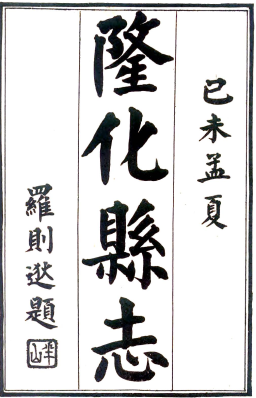 己未孟夏
隆化縣志
羅則逖題